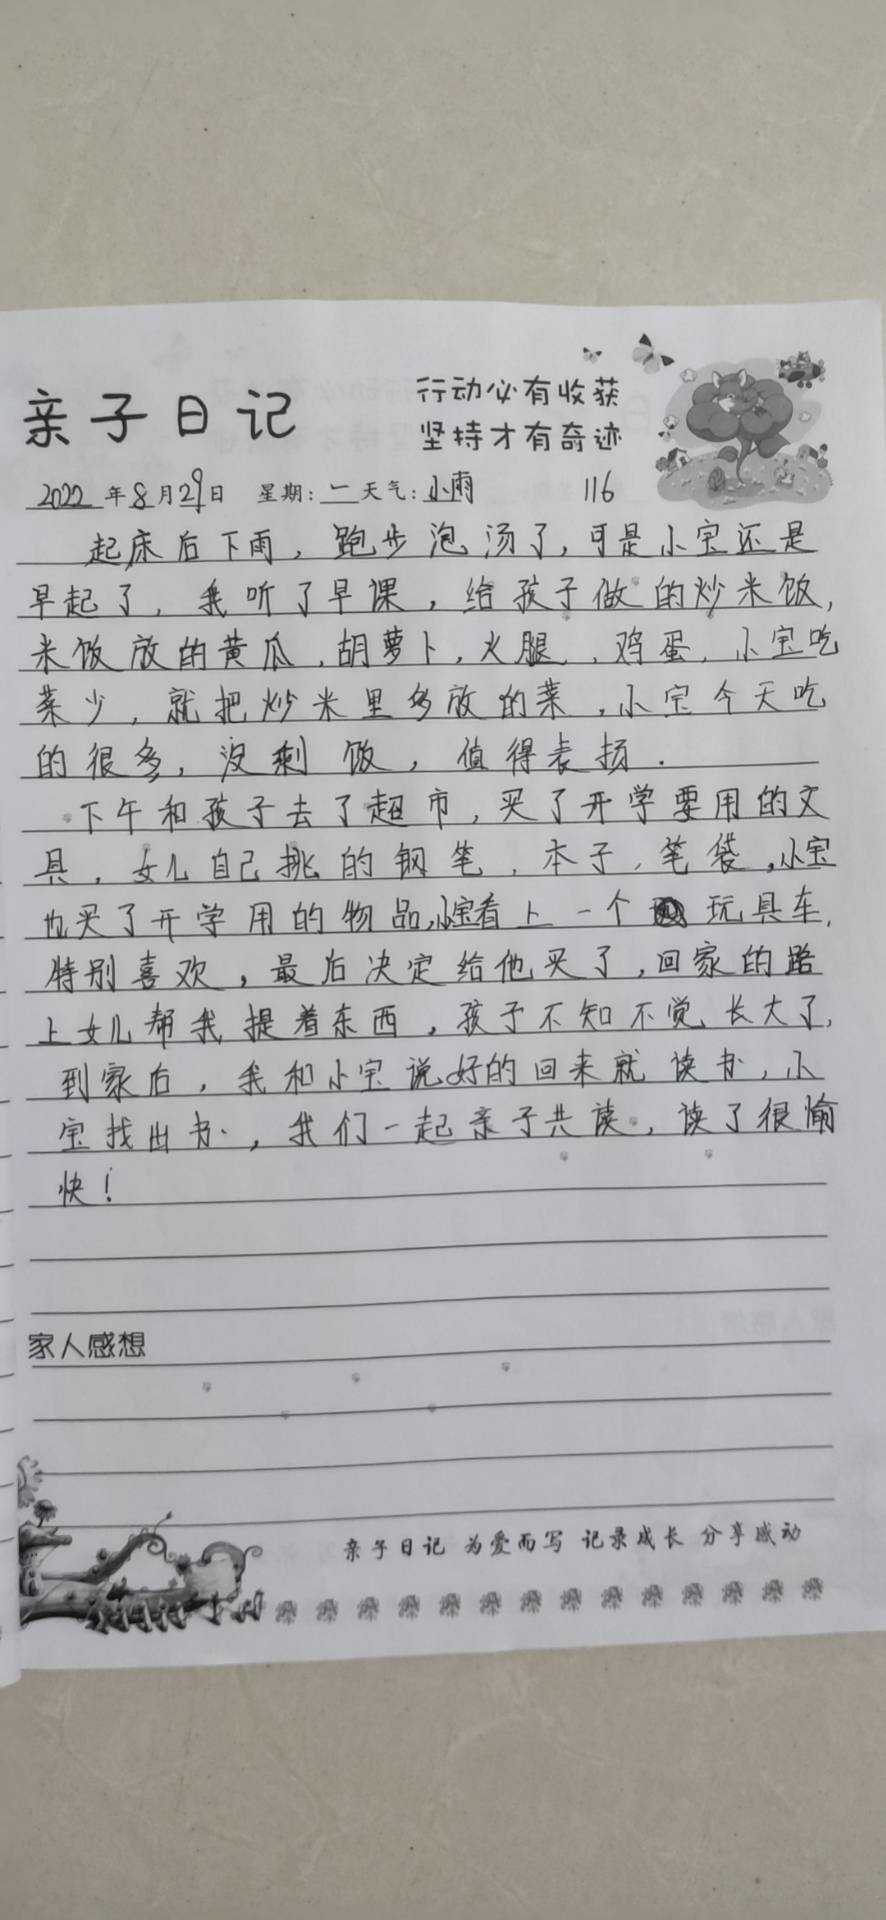 亲子日记
行动必有收获
坚持才有奇迹
2022年8月29日 星期:一天气:小雨 116
起床后下雨，跑步泡汤了，可是小宝还是
早起了，我听了早课，给孩子做的炒米饭，
米饭放的黄瓜，胡萝卜，火腿，鸡蛋，小宝吃
菜少，就把炒米里多放的菜，小宝今天吃
的很多，没剩饭，值得表扬.
下午和孩子去了超市，买了开学要用的文
具，女儿自己挑的钢笔，本子，笔袋，小宝
也买了开学用的物品，小宝看上一个玩具车，
特别喜欢，最后决定给他买了，回家的路
上女儿帮我提着东西，孩子不知不觉长大了，
到家后，我和小宝说好的回来就读书，小
宝找出书，我们一起亲子共读，读了很愉
快！
家人感想
亲子日记 为爱而写 记录成长 分享感动